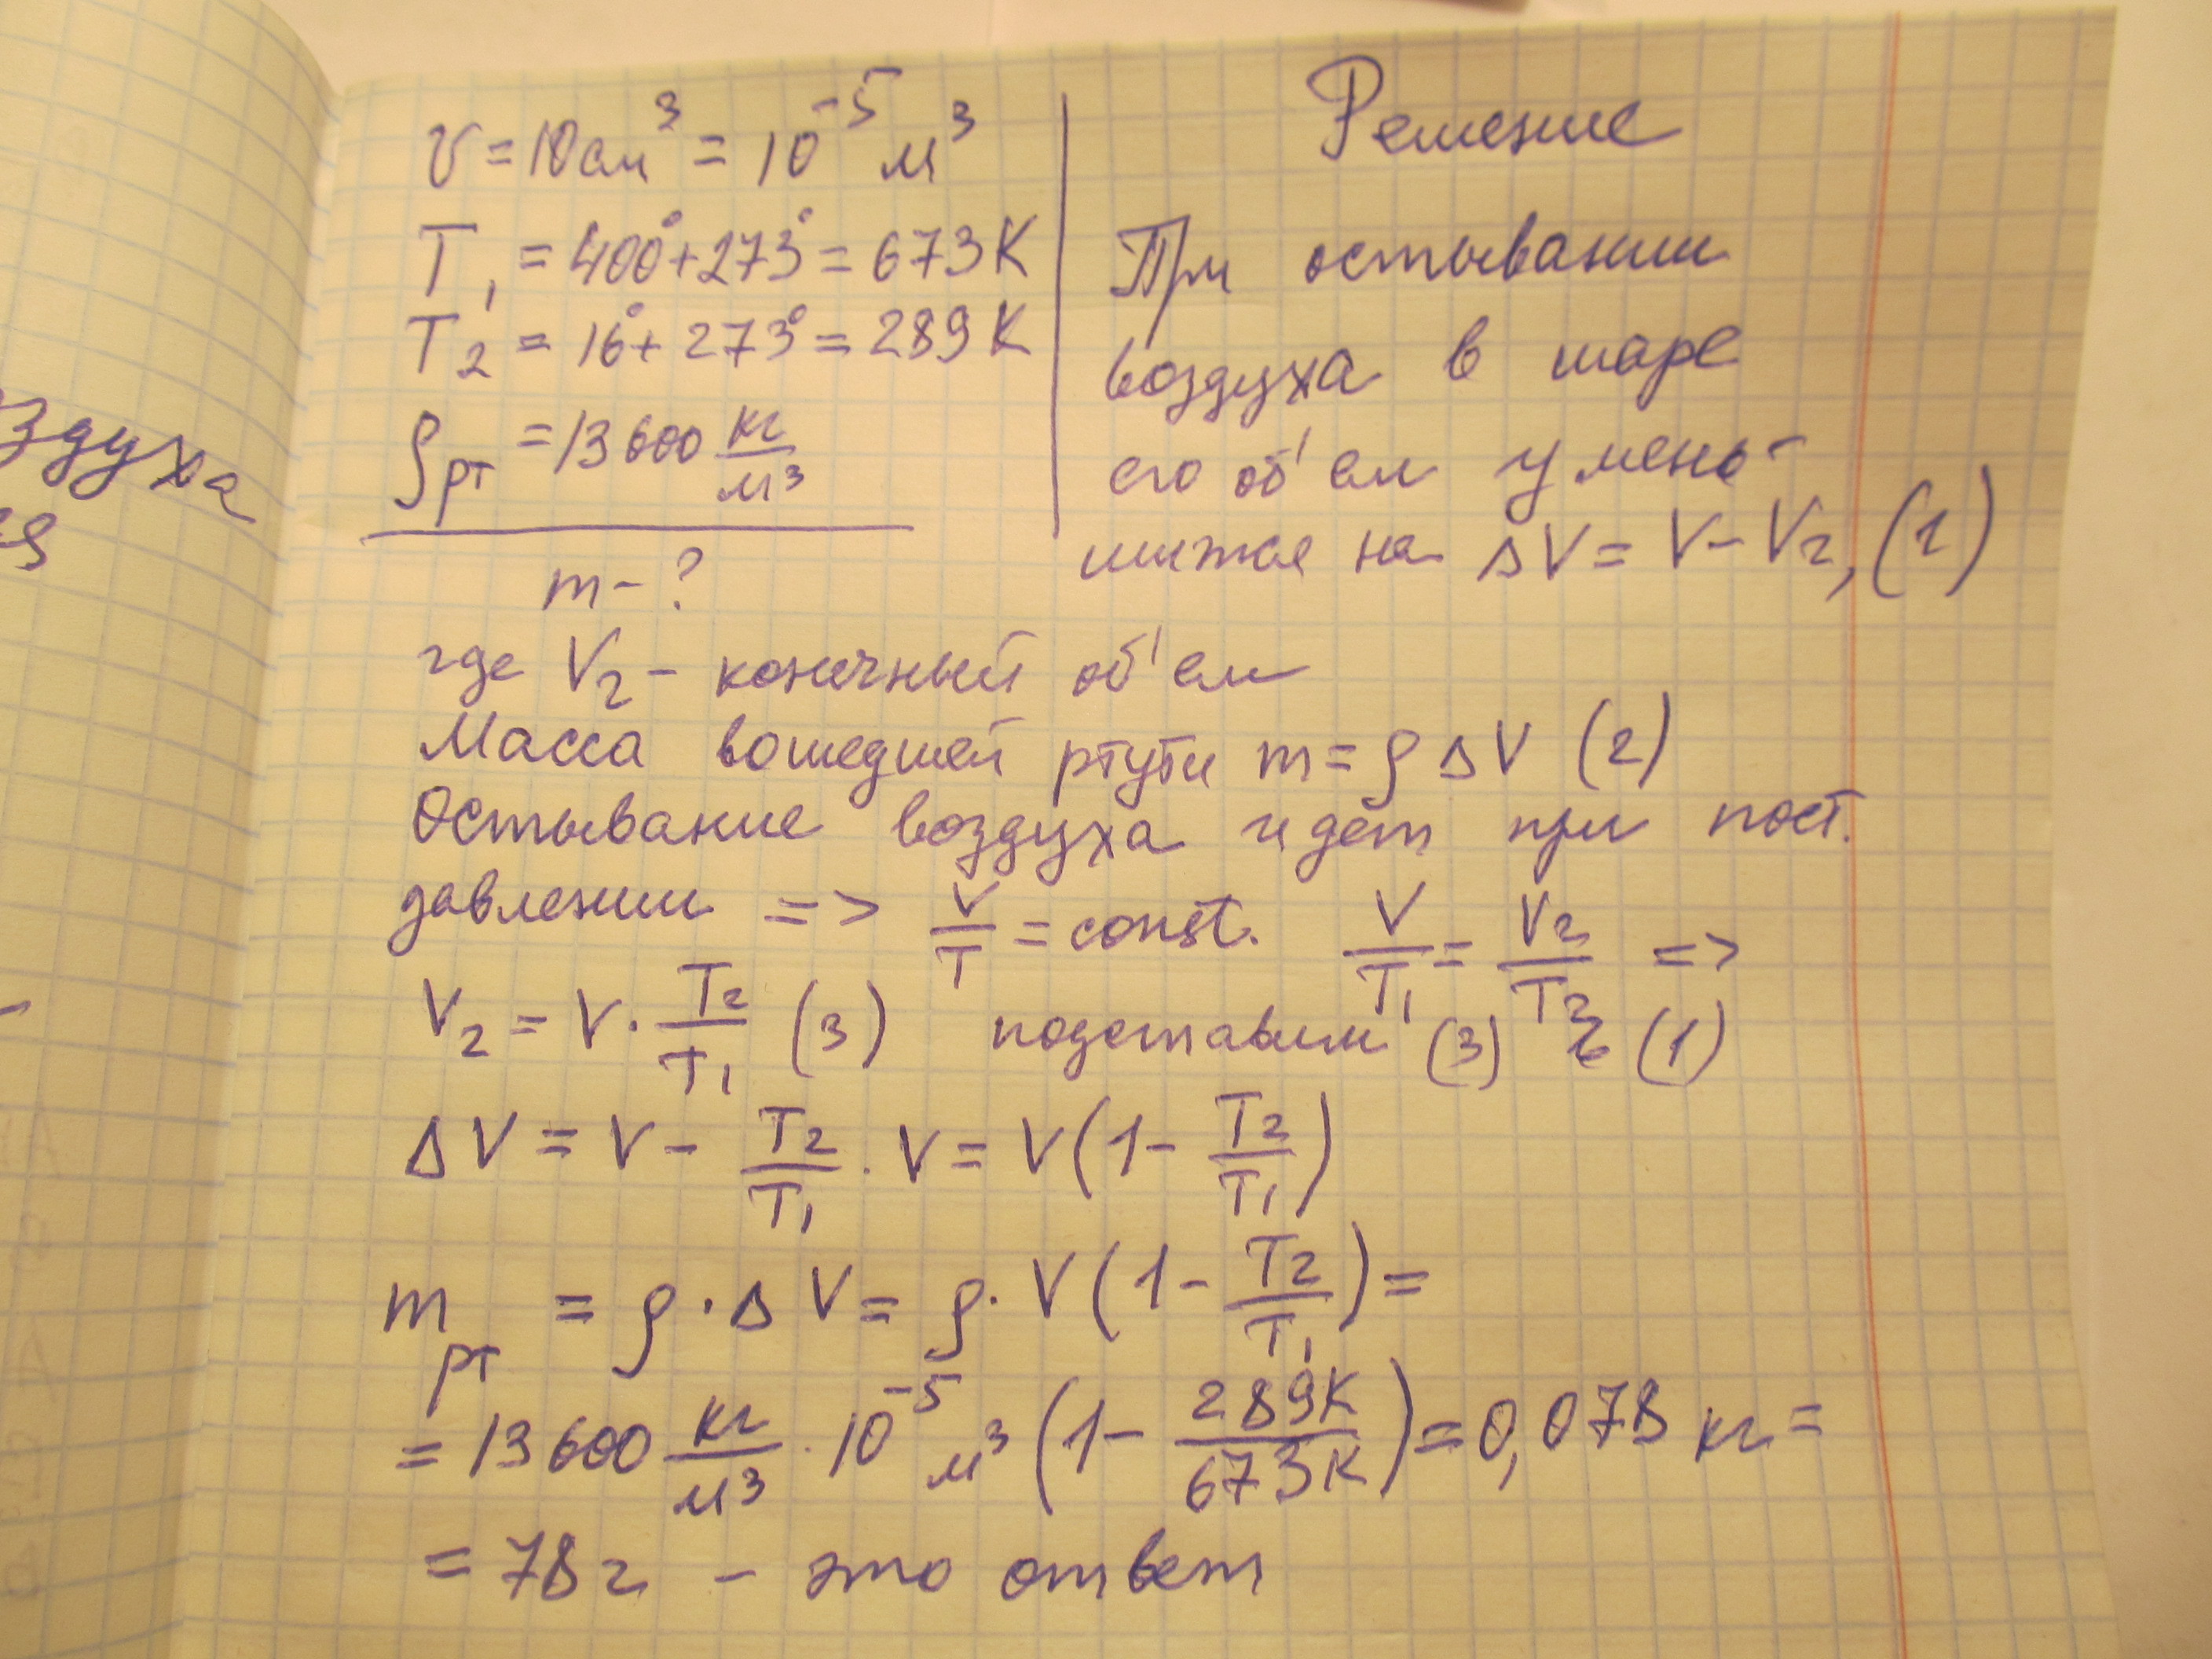 здуха
ся
V = 10см³ = 10⁻⁵ м³
T₁ = 400° + 273° = 673 K
T₂ = 16° + 273° = 289 K
ρрт = 13600 кг/м³
m - ?
Решение
При остывании
воздуха в шаре
его об'ем умень-
шится на ΔV = V - V₂, (1)
где V₂ - конечный об'ем
Масса вошедшей ртути m = ρ ΔV (2)
Остывание воздуха идёт при пост.
давлении => V/T = const. V/T₁ = V₂/T₂ =>
V₂ = V · T₂/T₁ (3) подставим (3) в (1)
ΔV = V - T₂/T₁ · V = V(1 - T₂/T₁)
mрт = ρ · ΔV = ρ · V(1 - T₂/T₁) =
= 13600 кг/м³ · 10⁻⁵ м³ (1 - 289K/673K) = 0,078 кг =
= 78 г - это ответ